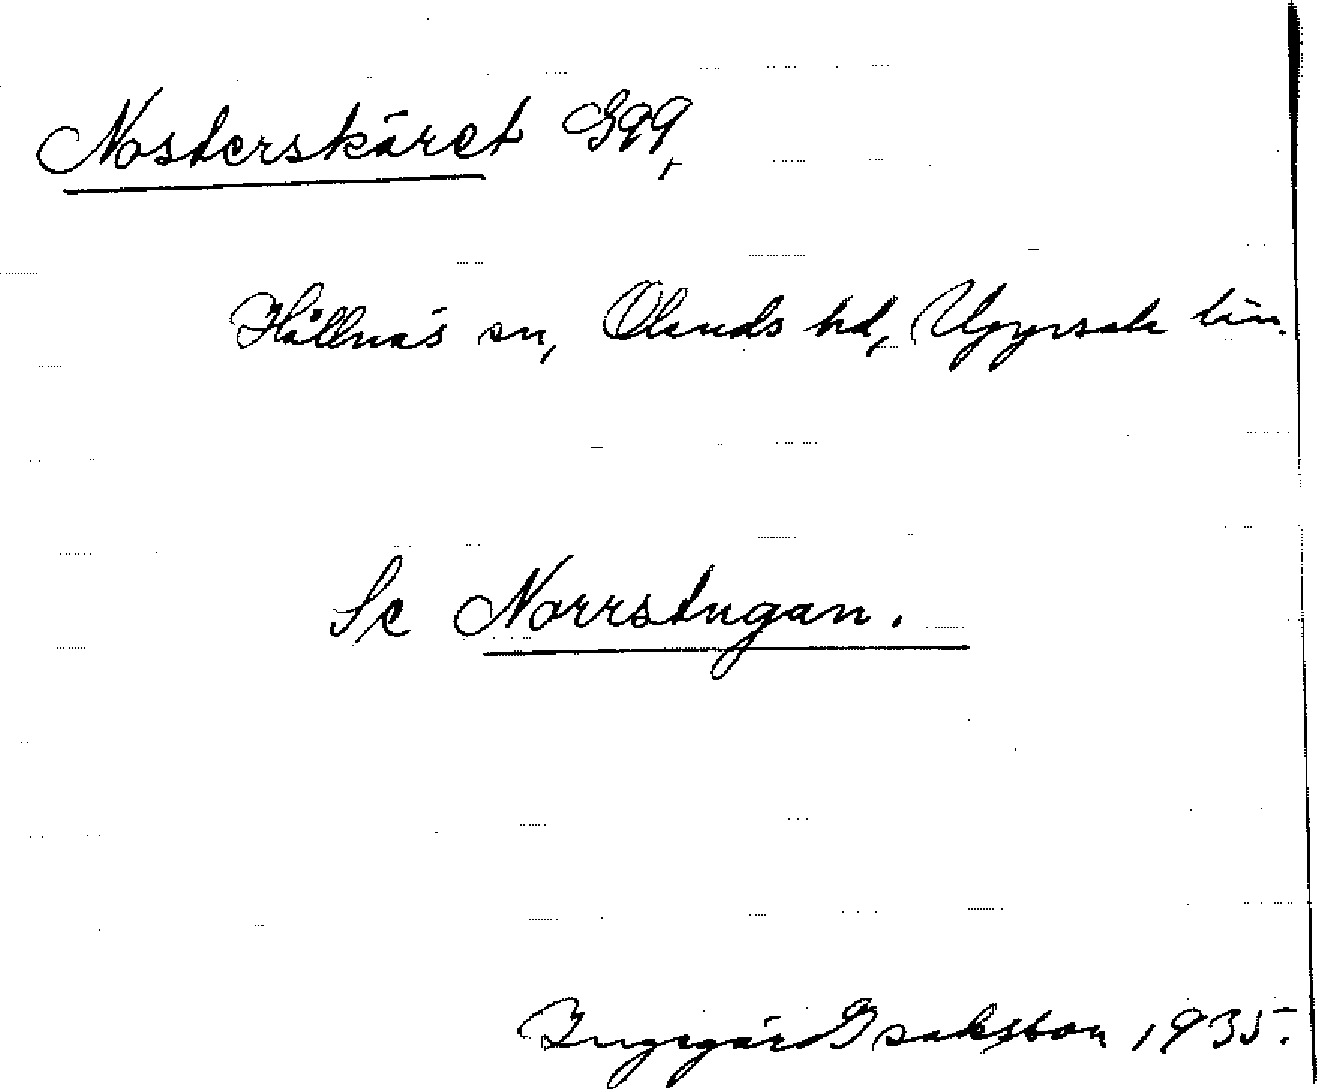 Nosterskäret Sgg,
Hållnäs sn, Olands hd, Uppsala län.
Se Norrstugan.
Ingegärd Isaksson 1935.